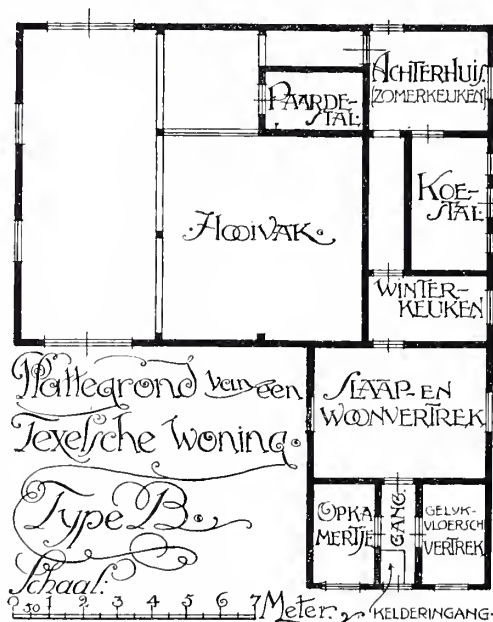 ACHTERHUIS.
(ZOMERKEUKEN)
PAARDE-
STAL.
KOE-
STAL.
·HOOIVAK·
WINTER-
KEUKEN
Plattegrond van een
Texelsche Woning.
SLAAP- EN
WOONVERTREK
Type B.
OPKA
MERTJE
GANG.
GELYK-
VLOERSCH
VERTREK
Schaal:
0 50 1 2 3 4 5 6 7 Meter.
KELDERINGANG.